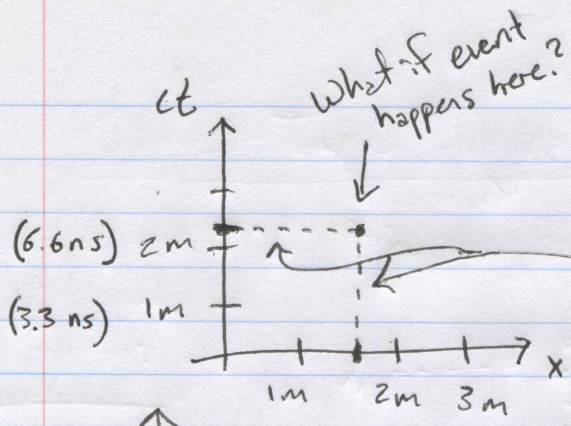 What if event
happens here?
ct
(6.6ns) 2m
(3.3 ns) 1m
1m 2m 3m x